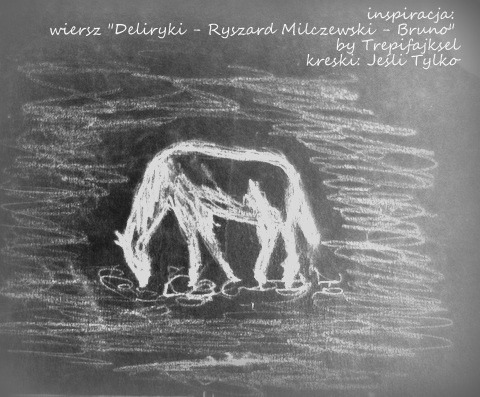 inspiracja:
wiersz "Deliryki - Ryszard Milczewski - Bruno"
by Trepifajksel
kreski: Jeśli Tylko